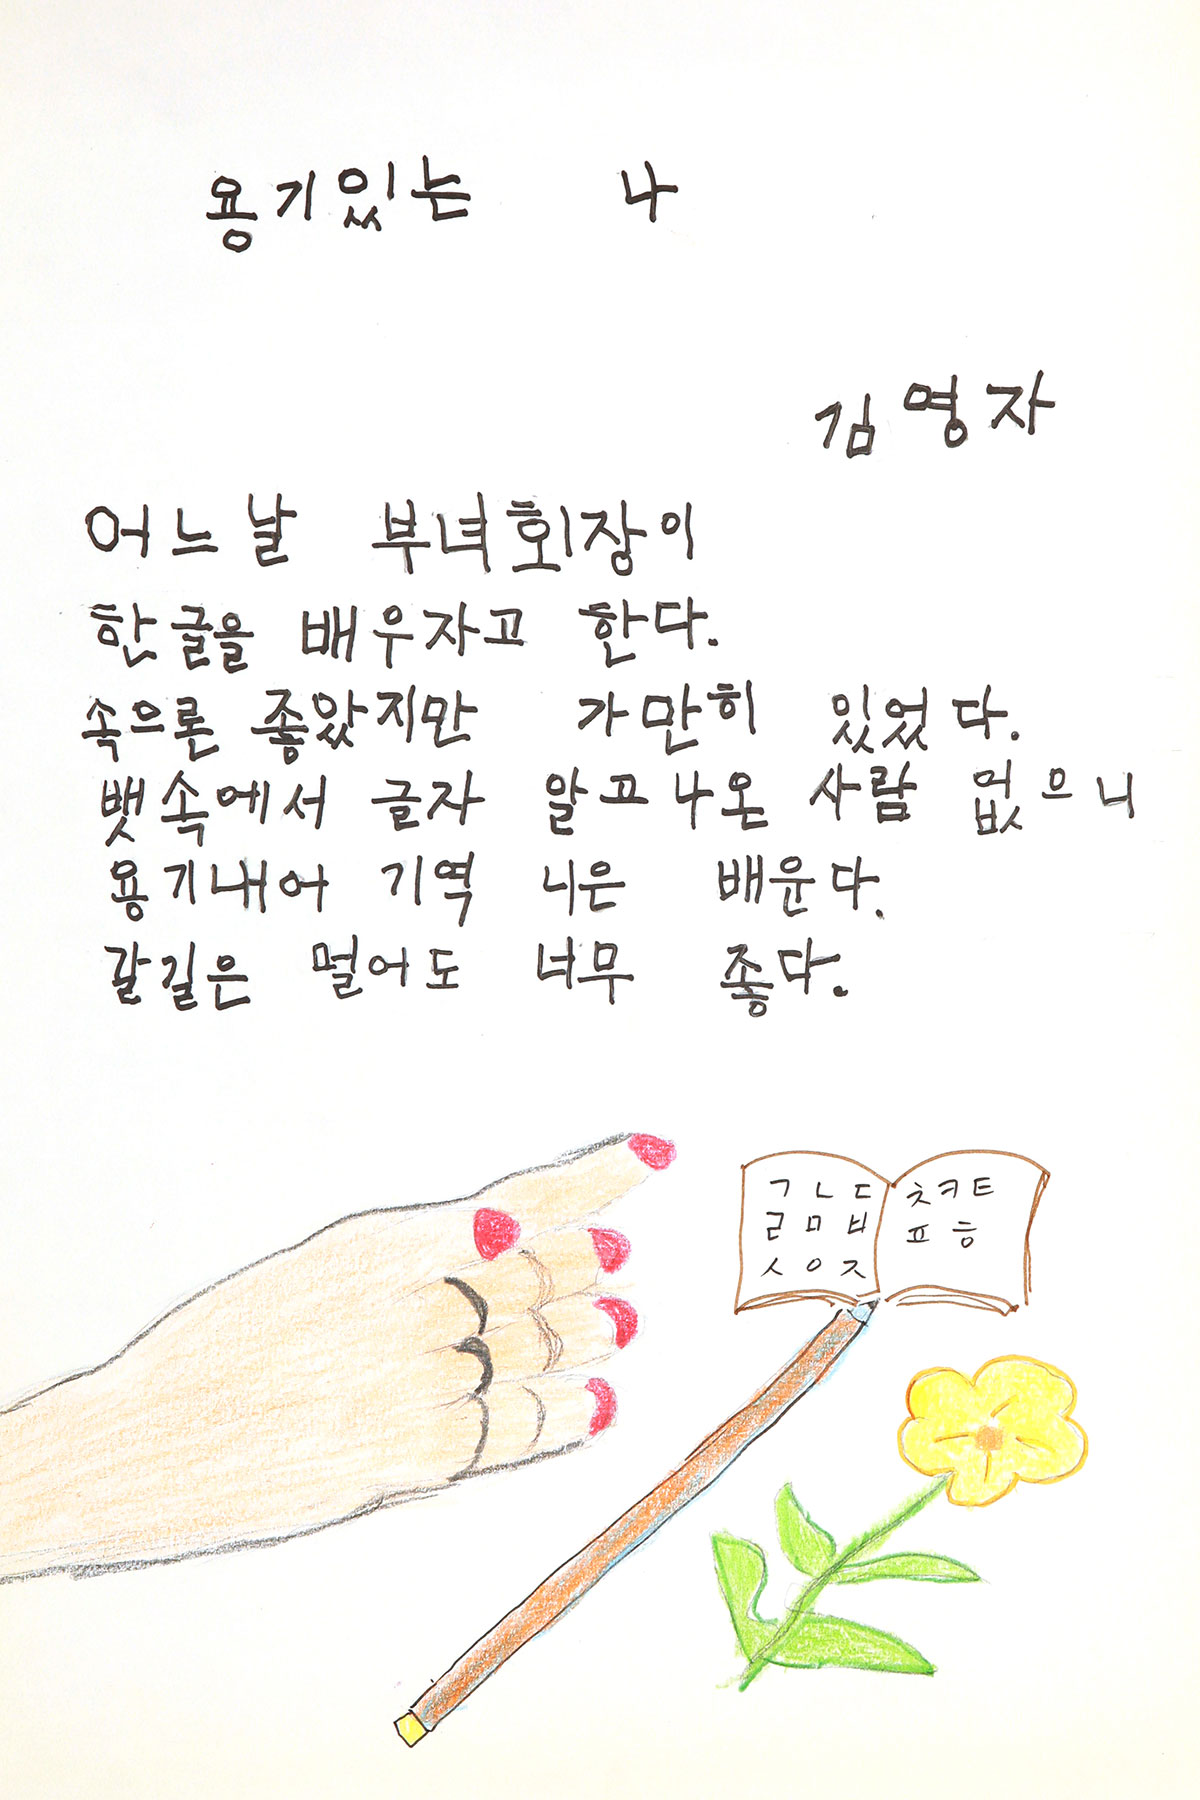 용기있는 나
김영자
어느날 부녀회장이
한글을 배우자고 한다.
속으론 좋았지만 가만히 있었다.
뱃속에서 글자 알고 나온 사람 없으니
용기내어 기역 니은 배운다.
갈길은 멀어도 너무 좋다.
ㄱ ㄴ ㄷ ㅊ ㅋ ㅌ
ㄹ ㅁ ㅂ ㅍ ㅎ
ㅅ ㅇ ㅈ